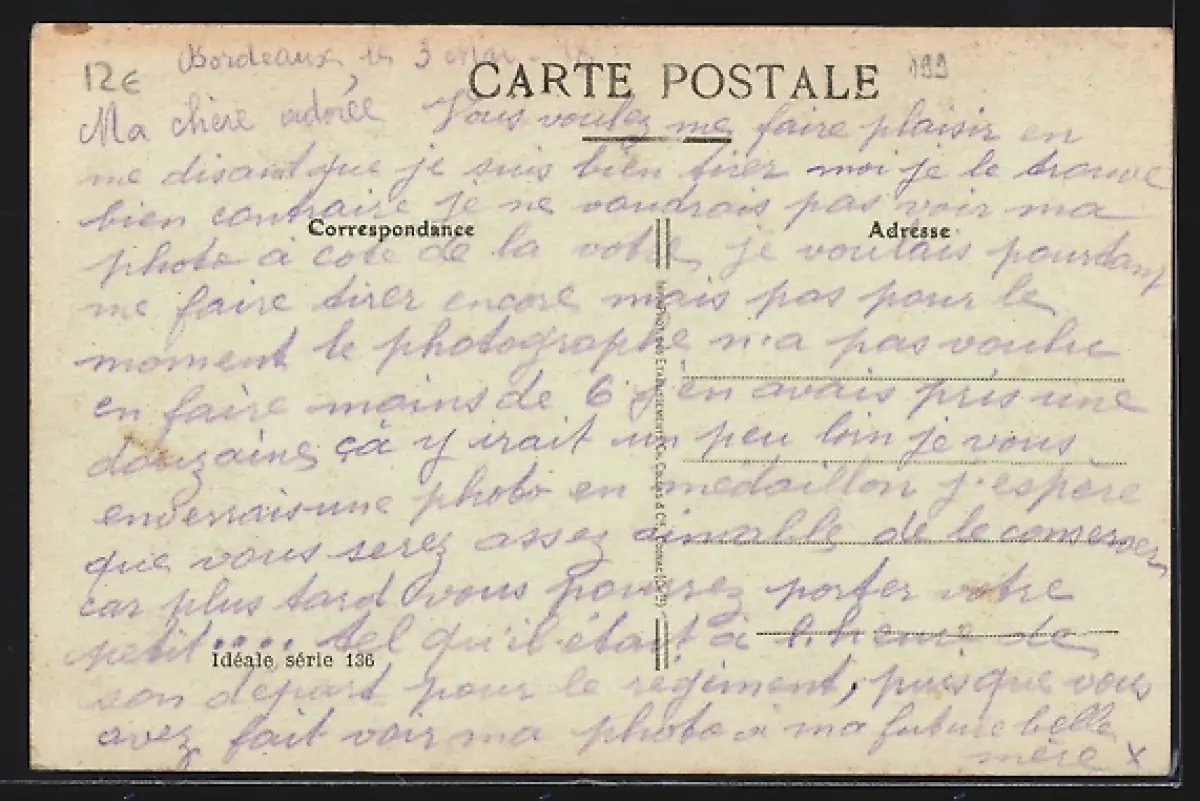 Bordeaux, le 3
12€
CARTE POSTALE
199
Ma chère adorée Vous voulez me faire plaisir en
me disant que je suis bien tirer moi je le trouve
bien contraire je ne voudrais pas voir ma
Correspondance
Adresse
photo a coté de la votre, je voulais pourtant
me faire tirer encore mais pas pour le
moment le photographe n'a pas voulu
en faire moins de 6 j'en avais pris une
douzaine, çà y irait un peu loin je vous
enverrais une photo en médaillon j'espère
que vous serez assez aimable de le conserver
car plus tard vous pourrez porter votre
petit.... tel qu'il était à l'heure de
Idéale, série 136
son départ pour le régiment, puisque vous
avez fait voir ma photo a ma future belle
mère x